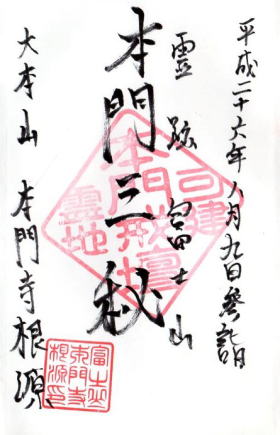 平成二十六年八月九日參詣
靈跡 富士山
本門三秘
大本山 本門寺根源
可建
本門戒壇
靈地
富士山
本門寺
根源印